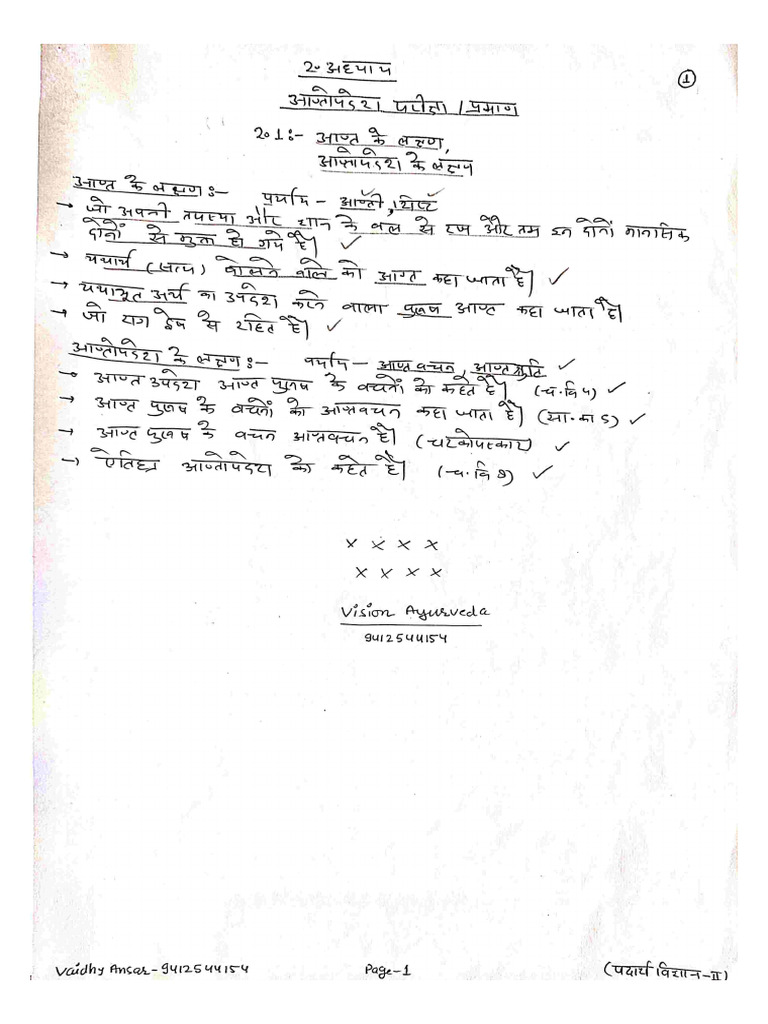 2. अध्याय
1
आप्तोपदेश परीक्षा / प्रमाण
2.1:- आप्त के लक्षण,
आप्तोपदेश के लक्षण
आप्त के लक्षण:- पर्याय - आप्तौ, शिष्ट
→ जो अपनी तपस्या और ज्ञान के बल से रज और तम इन दोनों मानसिक
दोषों से मुक्त हो गये है। ✓
→ यथार्थ (सत्य) बोलने वाले को आप्त कहा जाता है। ✓
→ यथाभूत अर्थ का उपदेश करने वाला पुरुष आप्त कहा जाता है।
→ जो राग द्वेष से रहित है। ✓
आप्तोपदेश के लक्षण:- पर्याय - आप्तवचन, आप्तश्रुति ✓
→ आप्त उपदेश आप्त पुरुष के वचनों को कहते है। (च.वि 4) ✓
→ आप्त पुरुष के वचनों को आप्तवचन कहा जाता है। (सा.का 5) ✓
→ आप्त पुरुष के वचन आप्तवचन है। (चरकोपस्कार) ✓
→ ऐतिह्य आप्तोपदेश को कहते है। (च.वि 8) ✓
× × × ×
× × × ×
Vision Ayurveda
9412544154
Vaidhy Ansar-9412544154 Page-1 (पदार्थ विज्ञान-II)